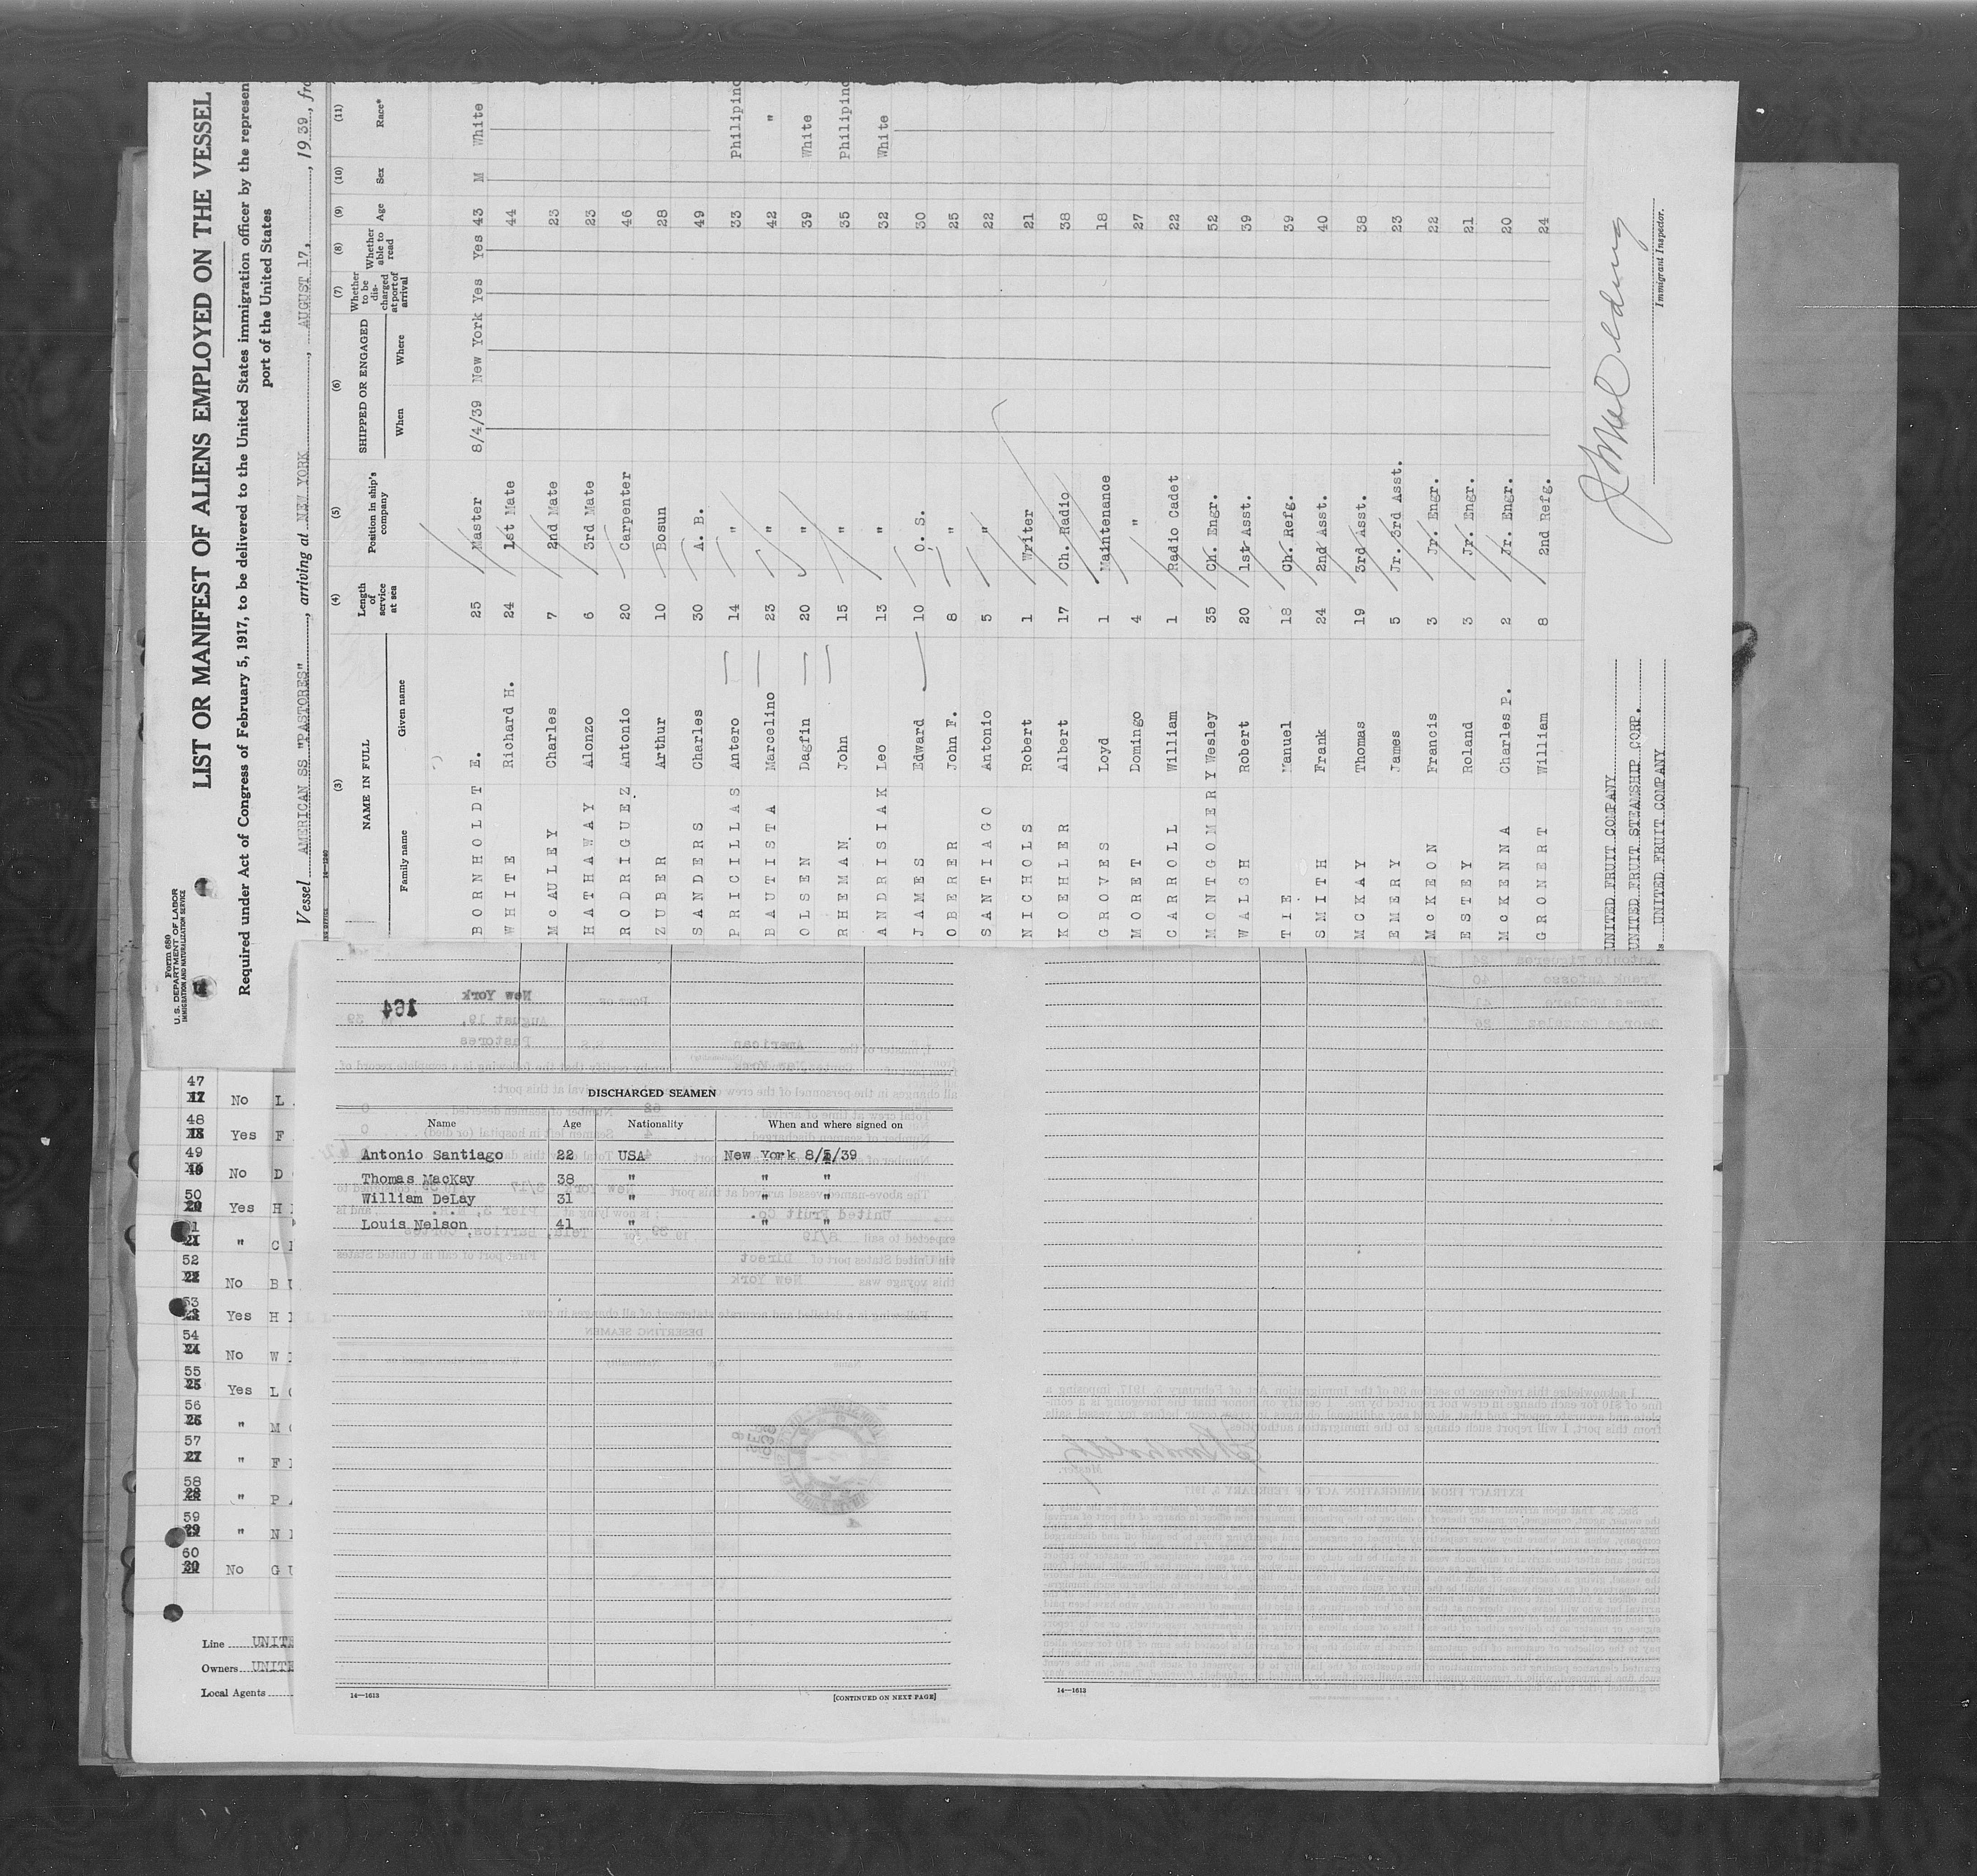 Form 680
U. S. DEPARTMENT OF LABOR
IMMIGRATION AND NATURALIZATION SERVICE
LIST OR MANIFEST OF ALIENS EMPLOYED ON THE VESSEL
Required under Act of Congress of February 5, 1917, to be delivered to the United States immigration officer by the represen
port of the United States
Vessel AMERICAN SS "PASTORES", arriving at NEW YORK, AUGUST 17, 1939, fro
(3) (4) (5) (6) (7) (8) (9) (10) (11)
NAME IN FULL Length of service at sea Position in ship's company SHIPPED OR ENGAGED Whether to be discharged at port of arrival Whether able to read Age Sex Race*
Family name Given name When Where
BORNHOLDT E. 25 Master 8/4/39 New York Yes Yes 43 M White
WHITE Richard H. 24 1st Mate 44
McAULEY Charles 7 2nd Mate 23
HATHAWAY Alonzo 6 3rd Mate 23
RODRIGUEZ Antonio 20 Carpenter 46
ZUBER Arthur 10 Bosun 28
SANDERS Charles 30 A. B. 49
PRICILLAS Antero 14 " 33 Philipino
BAUTISTA Marcelino 23 " 42 "
OLSEN Dagfin 20 " 39 White
RHEMAN. John 15 " 35 Philipino
ANDRISIAK Leo 13 " 32 White
JAMES Edward 10 O. S. 30
OBERER John F. 8 " 25
SANTIAGO Antonio 5 " 22
NICHOLS Robert 1 Writer 21
KOEHLER Albert 17 Ch. Radio 38
GROVES Loyd 1 Maintenance 18
MORET Domingo 4 " 27
CARROLL William 1 Radio Cadet 22
MONTGOMERY Wesley 35 Ch. Engr. 52
WALSH Robert 20 1st Asst. 39
TIE Manuel 18 Ch. Refg. 39
SMITH Frank 24 2nd Asst. 40
MCKAY Thomas 19 3rd Asst. 38
EMERY James 5 Jr. 3rd Asst. 23
McKEON Francis 3 Jr. Engr. 22
ESTEY Roland 3 Jr. Engr. 21
McKENNA Charles P. 2 Jr. Engr. 20
GRONERT William 8 2nd Refg. 24
UNITED FRUIT COMPANY
UNITED FRUIT STEAMSHIP CORP.
UNITED FRUIT COMPANY
Immigrant Inspector.
164
DISCHARGED SEAMEN
Name Age Nationality When and where signed on
Antonio Santiago 22 USA New York 8/5/39
Thomas MacKay 38 " " "
William DeLay 31 " " "
Louis Nelson 41 " " "
14—1613 [CONTINUED ON NEXT PAGE]
14—1613
47
No L
48
18 Yes F
49
19 No D
50
20 Yes H
21 " C
52
22 No B U
53
Yes H
54
24 No W
55
25 Yes L
56
26 " M
57
27 " F
58
28 " P
59
29 " N
60
30 No G U
Line UNITE
Owners UNITE
Local Agents